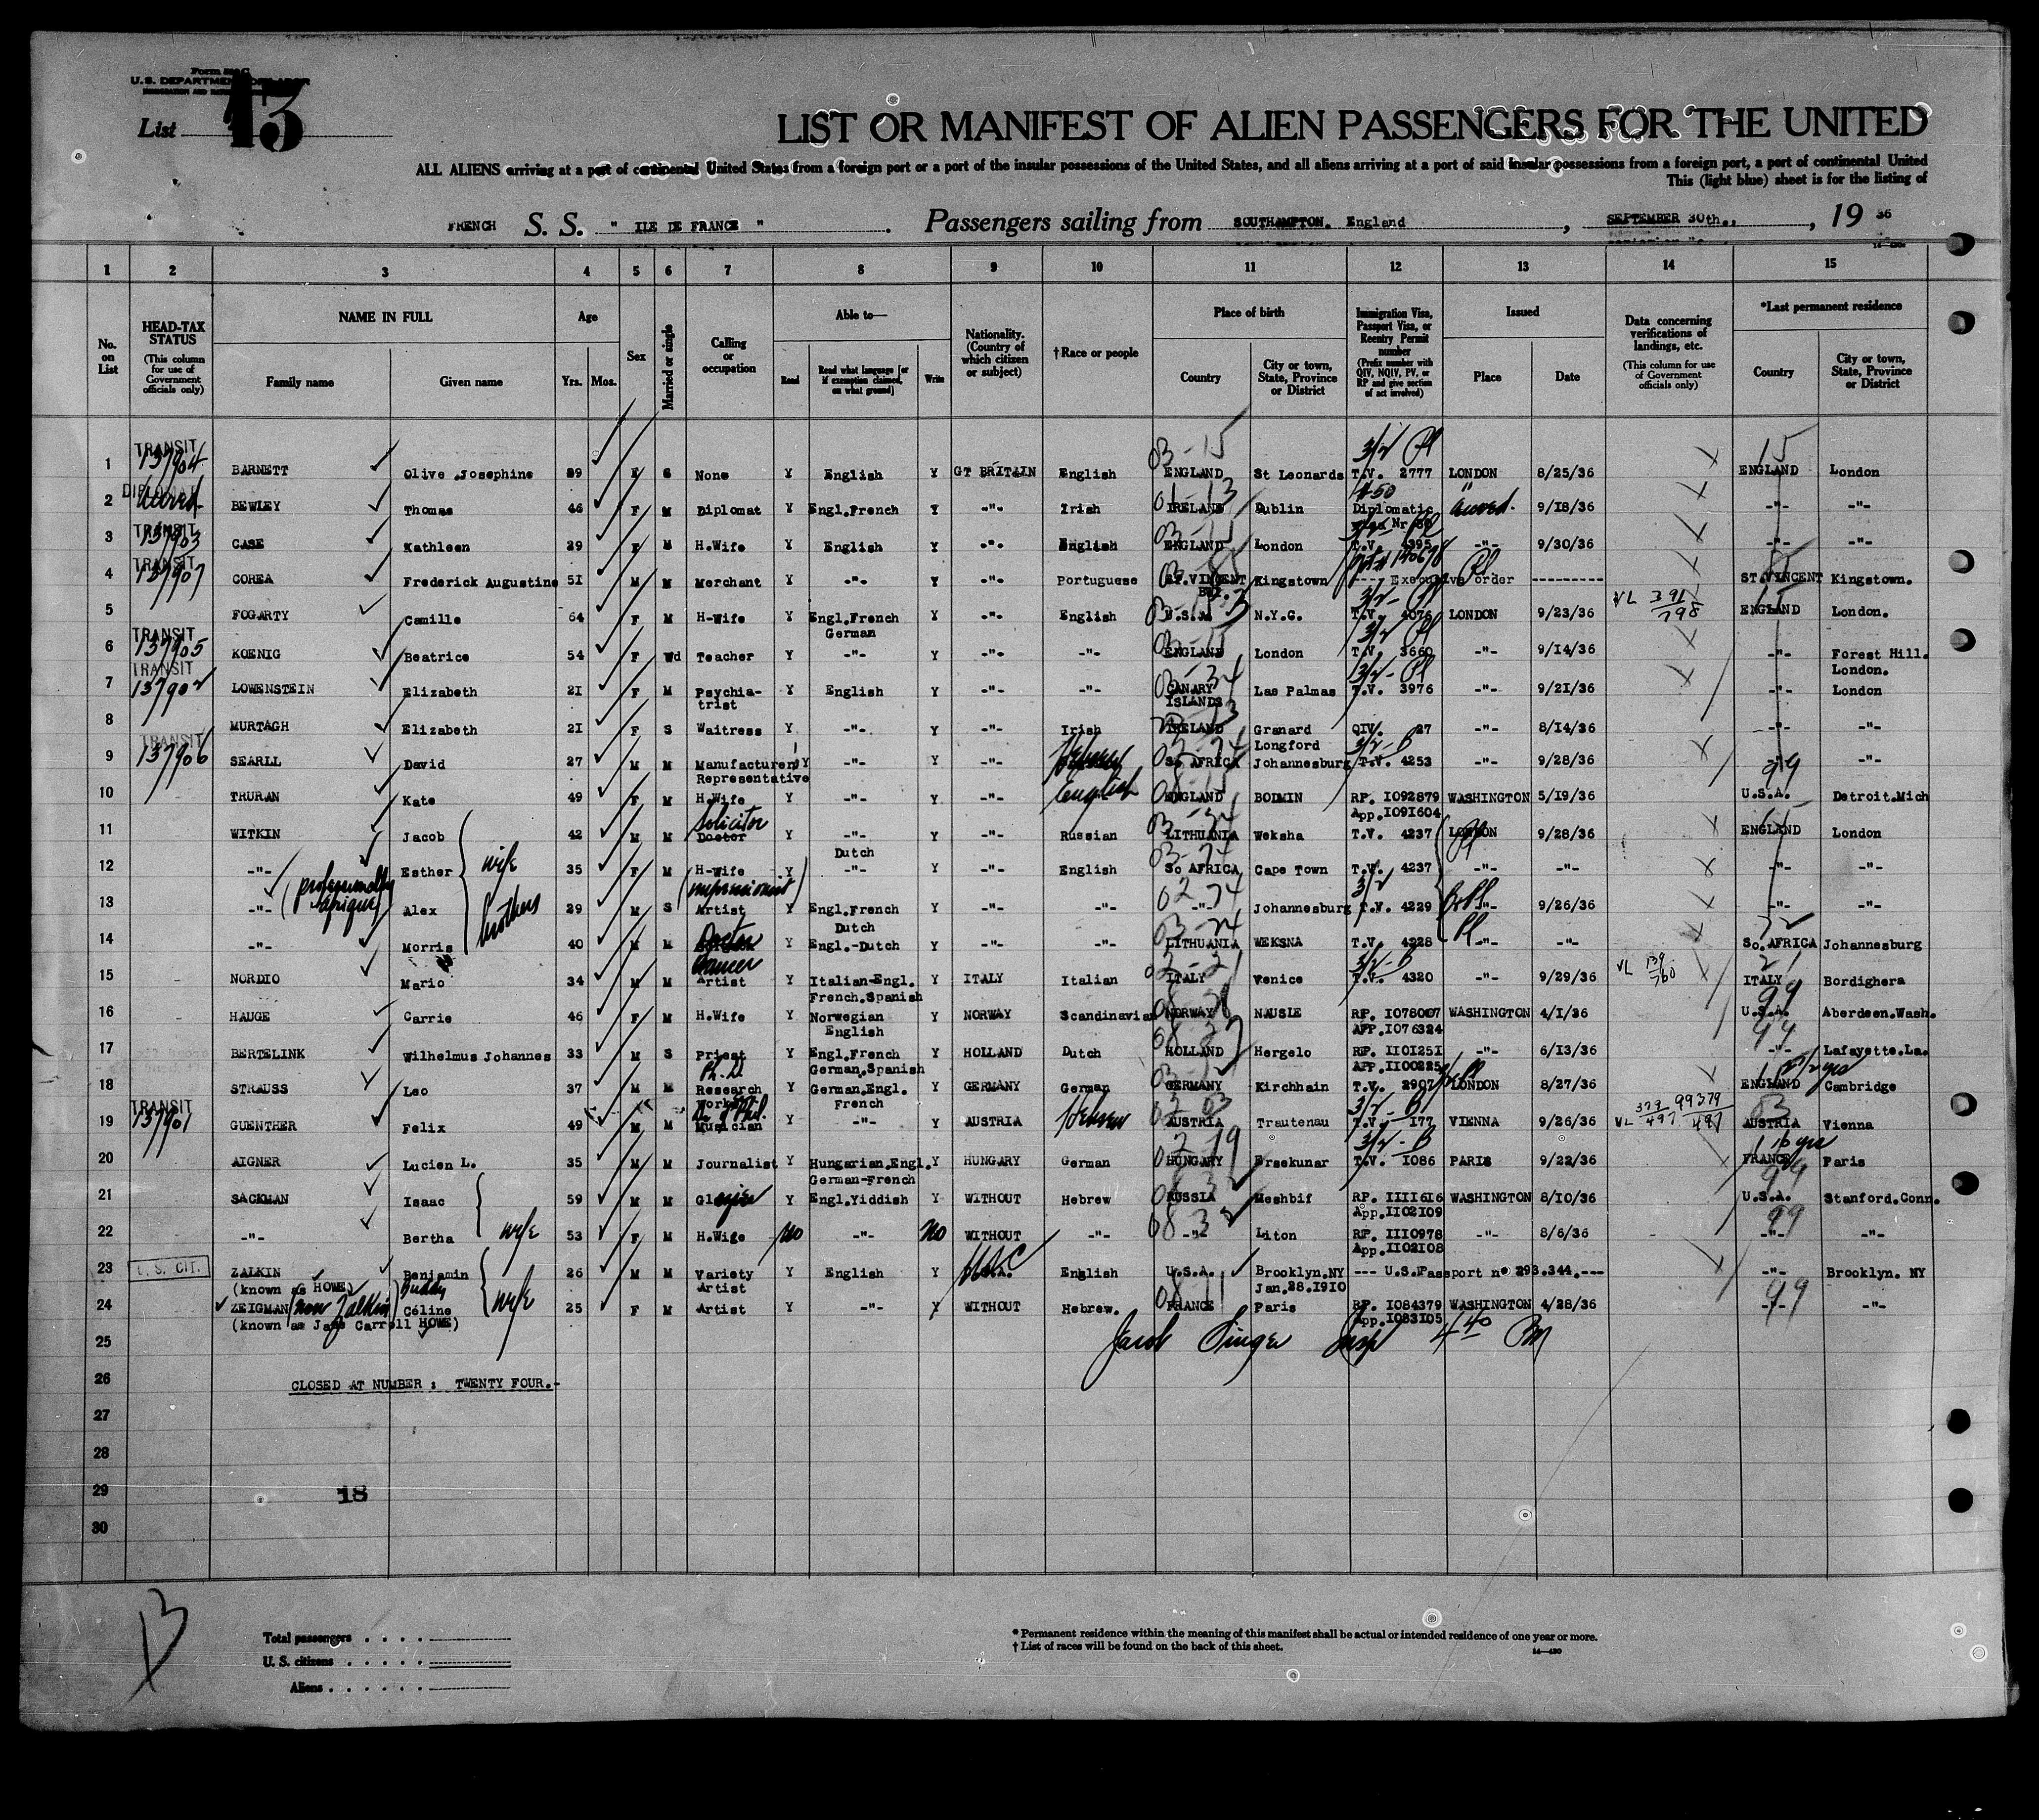 Form 500 C
U. S. DEPARTMENT OF LABOR
List 13
LIST OR MANIFEST OF ALIEN PASSENGERS FOR THE UNITED
ALL ALIENS arriving at a port of continental United States from a foreign port or a port of the insular possessions of the United States, and all aliens arriving at a port of said insular possessions from a foreign port, a port of continental United
This (light blue) sheet is for the listing of
FRENCH S. S. " ILE DE FRANCE " . Passengers sailing from SOUTHAMPTON. England , SEPTEMBER 30th., , 19 36
1 2 3 4 5 6 7 8 9 10 11 12 13 14 15
No. on List
HEAD-TAX STATUS (This column for use of Government officials only)
NAME IN FULL Family name Given name
Age Yrs. Mos.
Sex
Married or single
Calling or occupation
Able to— Read Read what language [or if exemption claimed, on what ground] Write
Nationality. (Country of which citizen or subject)
†Race or people
Place of birth Country City or town, State, Province or District
Immigration Visa, Passport Visa, or Reentry Permit number (Prefix number with QIV, NQIV, PV, or RP and give section of act involved)
Issued Place Date
Data concerning verifications of landings, etc. (This column for use of Government officials only)
*Last permanent residence Country City or town, State, Province or District
1 TRANSIT 137904 BARNETT Olive Josephine 29 F S None Y English Y GT BRITAIN English 03-15 ENGLAND St Leonards 3/2 Pl T.V. 2777 LONDON 8/25/36 15 ENGLAND London
2 DIPLOMAT BEWLEY Thomas 46 F M Diplomat Y Engl.French Y -"- Irish 01-13 IRELAND Dublin Diplomatic visa Nr 9/18/36 -"- -"-
3 TRANSIT 137903 CASE Kathleen 29 F M H.Wife Y English Y -"- English 03-15 ENGLAND London T.V. 4395 -"- 9/30/36 -"- -"-
4 TRANSIT 137907 COREA Frederick Augustine 51 M M Merchant Y -"- Y -"- Portuguese ST.VINCENT Kingstown ---- Executive order --------- ST.VINCENT Kingstown.
5 FOGARTY Camille 64 F M H-Wife Y Engl.French German Y -"- English U.S.A. N.Y.C. T.V. 4076 LONDON 9/23/36 VL 391/798 ENGLAND London.
6 TRANSIT 137905 KOENIG Beatrice 54 F Wd Teacher Y -"- Y -"- -"- 03-15 ENGLAND London 3/2 Pl T.V. 3660 -"- 9/14/36 -"- Forest Hill. London.
7 TRANSIT 137902 LOWENSTEIN Elizabeth 21 F M Psychia-trist Y English Y -"- -"- 03-34 CANARY ISLANDS Las Palmas 3/2-Pl T.V. 3976 -"- 9/21/36 -"- London
8 MURTAGH Elizabeth 21 F S Waitress Y -"- Y -"- Irish IRELAND Granard Longford QIV. 27 -"- 8/14/36 -"- -"-
9 TRANSIT 137906 SEARLL David 27 M M Manufacturer Representative Y -"- Y -"- Hebrew SO AFRICA Johannesburg 3/2-B T.V. 4253 -"- 9/28/36 -"- -"-
10 THURAN Kate 49 F M H.Wife Y -"- Y -"- English 08-15 ENGLAND BODMIN RP. 1092879 App.1091604 WASHINGTON 5/19/36 99 U.S.A. Detroit.Mich
11 WITKIN Jacob 42 M M Doctor Solicitor Y -"- Y -"- Russian LITHUANIA Weksha T.V. 4237 LONDON 9/28/36 ENGLAND London
12 -"- Esther wife 35 F M H-Wife Y Dutch -"- Y -"- English 03-74 SO AFRICA Cape Town T.V. 4237 -"- -"- -"- -"-
13 -"- (professionally Afrique) Alex brothers 29 M S Artist (impressionist) Y Engl.French Dutch Y -"- -"- 02-74 -"- Johannesburg 3/2 T.V. 4229 -"- 9/26/36 -"- -"-
14 -"- Morris 40 M M Doctor Y Engl.-Dutch Y -"- -"- 03-24 LITHUANIA WEKSNA T.V. 4228 -"- -"- 72 So.AFRICA Johannesburg
15 NORDIO Mario 34 M M Dancer Artist Y Italian-Engl. French.Spanish Y ITALY Italian 02-21 ITALY Venice 3/2-B T.V. 4320 -"- 9/29/36 VL 139/760 21 ITALY Bordighera
16 HAUGE Carrie 46 F M H.Wife Y Norwegian English Y NORWAY Scandinavian 08-28 NORWAY NAUSIE RP. 1078007 APP.1076324 WASHINGTON 4/1/36 99 U.S.A. Aberdeen.Wash.
17 BERTELINK Wilhelmus Johannes 33 M S Priest Y Engl.French German.Spanish Y HOLLAND Dutch HOLLAND Hergelo RP. 1101251 APP.1100225 -"- 6/13/36 99 -"- Lafayette.La.
18 STRAUSS Leo 37 M M Ph.D Research Worker Y German.Engl. French Y GERMANY German GERMANY Kirchhain T.V. 2907 LONDON 8/27/36 2 1/2 yrs ENGLAND Cambridge
19 TRANSIT 137901 GUENTHER Felix 49 M M Dr. of Phil. Musician Y -"- Y AUSTRIA Hebrew 02 03 AUSTRIA Trautenau 3/2-B T.V. 177 VIENNA 9/26/36 VL 379/497 99379/497 03 AUSTRIA Vienna
20 AIGNER Lucien L. 35 M M Journalist Y Hungarian.Engl. German-French Y HUNGARY German 02-19 HUNGARY Ersekunar 3/2-B T.V. 1086 PARIS 9/22/36 10 yrs FRANCE Paris
21 SACKMAN Isaac 59 M M Glazier Y Engl.Yiddish Y WITHOUT Hebrew RUSSIA Meshbif RP. 1111616 App.1102109 WASHINGTON 8/10/36 99 U.S.A. Stanford.Conn.
22 -"- Bertha wife 53 F M H.Wife No -"- No WITHOUT -"- 08-32 -"- Liton RP. 1110978 App.1102108 -"- 8/6/36 99 -"- -"-
23 U. S. CIT. ZALKIN (known as HOWE) Benjamin Buddy 26 M M Variety Artist Y English Y U.S.A. English U.S.A. Brooklyn.NY Jan.28.1910 --- U.S.Passport n° 293.344.--- -"- Brooklyn. NY
24 ZEIGMAN (now Zalkin) (known as Jane Carroll HOWE) Céline wife 25 F M Artist Y -"- Y WITHOUT Hebrew. 08-11 FRANCE Paris RP. 1084379 App.1083105 WASHINGTON 4/28/36 99 -"- -"-
25 Jacob Singer Insp 4 40 PM
26 CLOSED AT NUMBER : TWENTY FOUR.-
27
28
29 18
30
13
Total passengers . . . .
U. S. citizens . . . . .
Aliens . . . . . .
* Permanent residence within the meaning of this manifest shall be actual or intended residence of one year or more.
† List of races will be found on the back of this sheet.
14—430